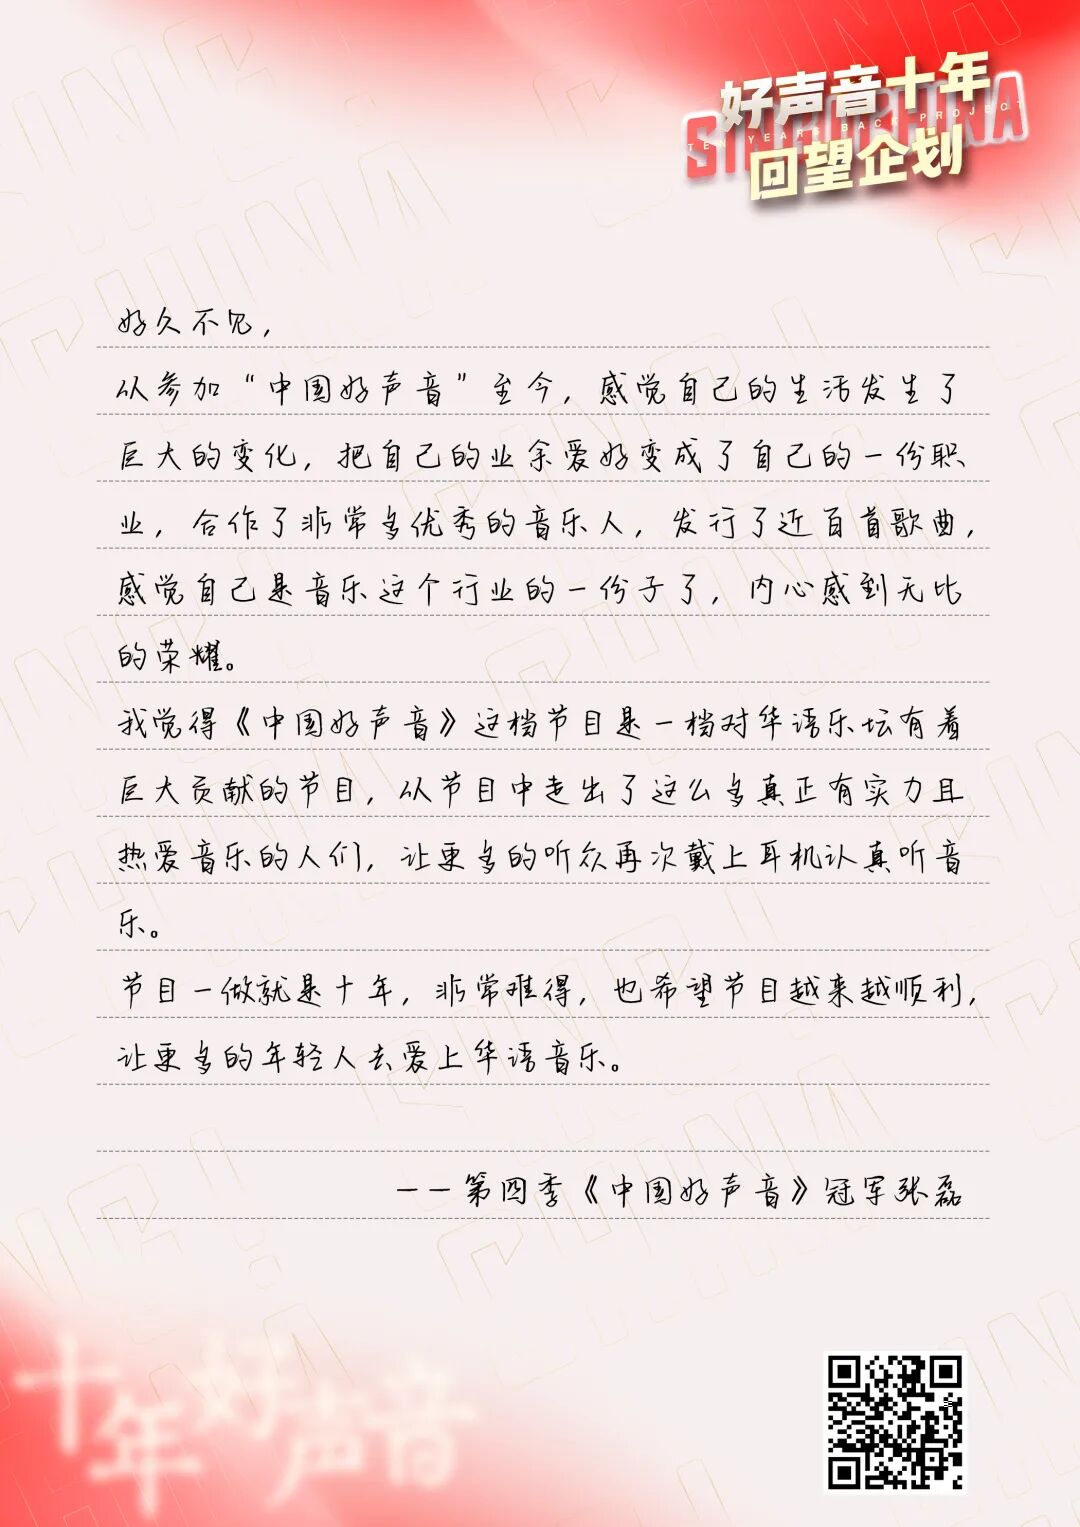 好声音十年
SING! CHINA
TEN YEARS BACK PROJECT
回望企划
好久不见，
从参加“中国好声音”至今，感觉自己的生活发生了
巨大的变化，把自己的业余爱好变成了自己的一份职
业，合作了非常多优秀的音乐人，发行了近百首歌曲，
感觉自己是音乐这个行业的一份子了，内心感到无比
的荣耀。
我觉得《中国好声音》这档节目是一档对华语乐坛有着
巨大贡献的节目，从节目中走出了这么多真正有实力且
热爱音乐的人们，让更多的听众再次戴上耳机认真听音
乐。
节目一做就是十年，非常难得，也希望节目越来越顺利，
让更多的年轻人去爱上华语音乐。
——第四季《中国好声音》冠军张磊
十年好声音